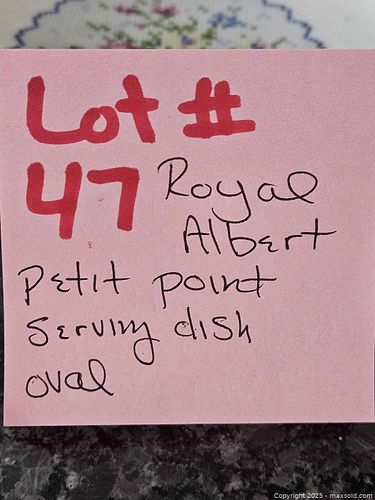 Lot #
47 Royal
Albert
Petit point
serving dish
oval
Copyright 2025 - maxsold.com